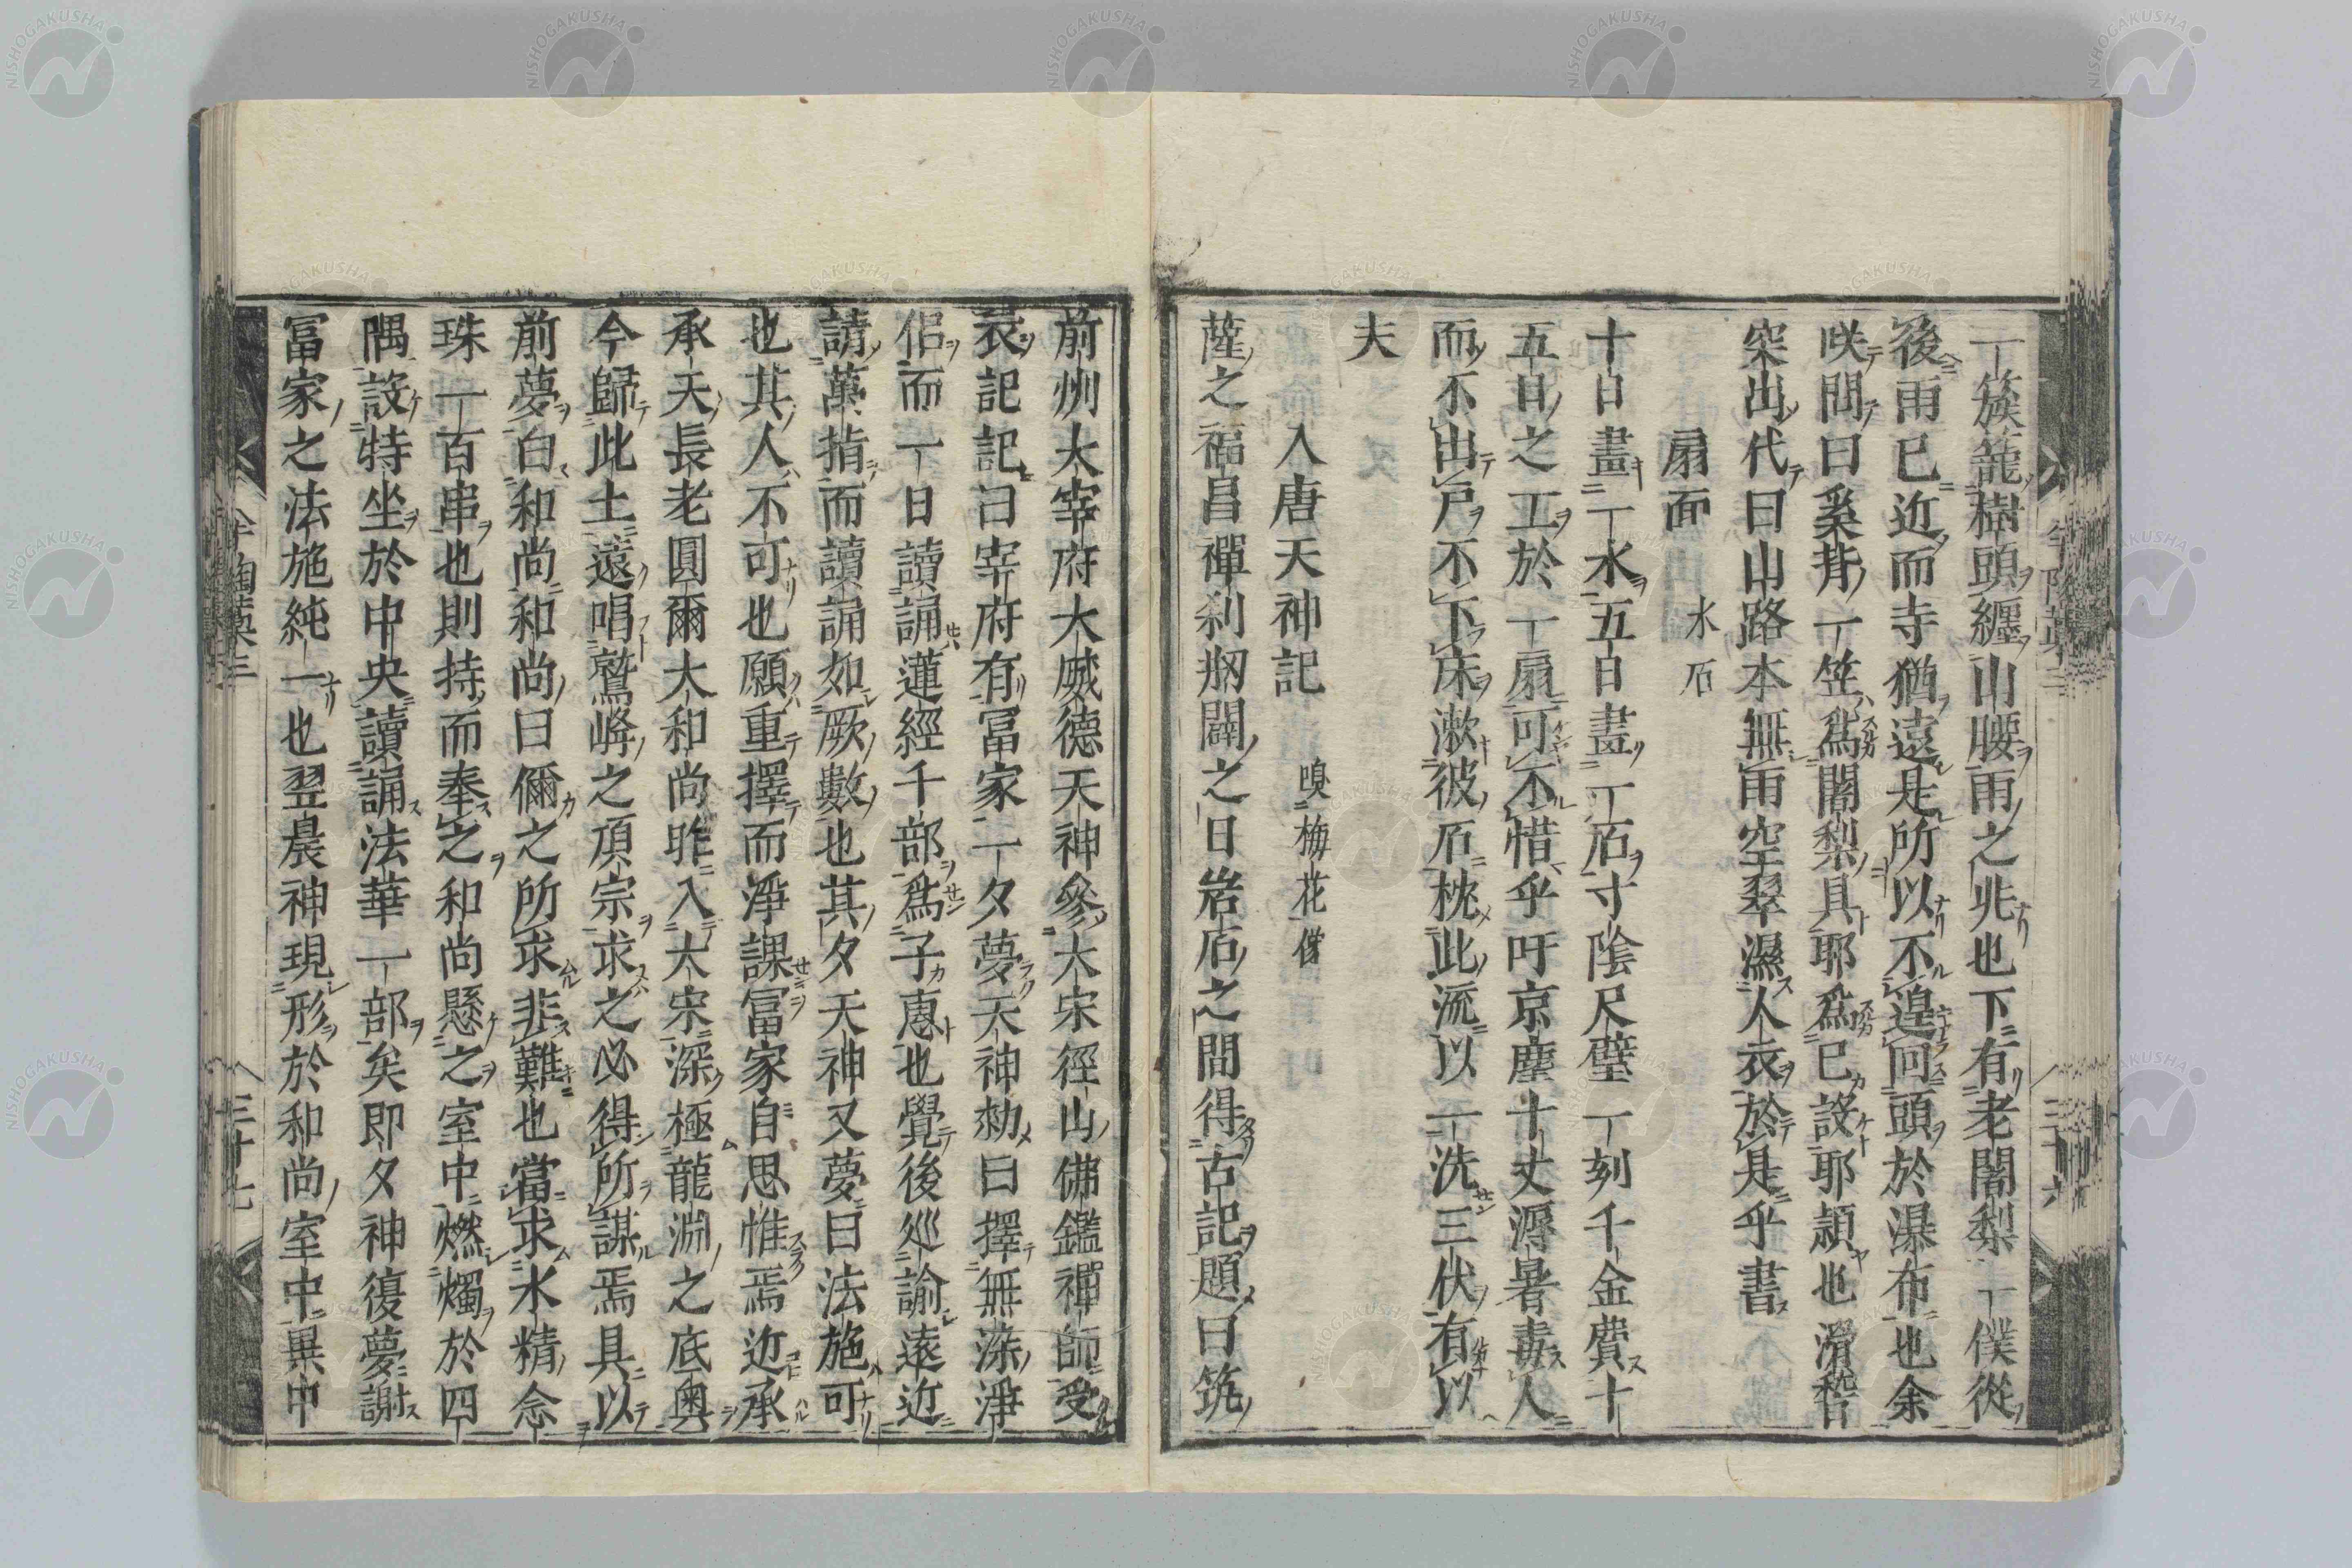 一簇籠樹頭纏山腰雨之兆也下有老闍梨一僕從
後雨已近而寺猶遠是所以不遑回頭於瀑布也余
咲問曰奚背一笠爲闍梨具耶爲已設耶頴也滑稽
突出代曰山路本無雨空翠濕人衣於是乎書
扇面 水石
十日畫一水五日畫一石寸陰尺璧一刻千金費十
五日之工於一扇可不惜乎吁京塵十丈溽暑毒人
而不出戸不下床漱彼石枕此流以一洗三伏有以
夫
入唐天神記 嗅梅花僧
薩之福昌禪刹剏闢之日岩石之間得古記題曰筑
前州太宰府大威德天神參大宋徑山佛鑑禪師受
衣記記曰宰府有冨家一夕夢天神勑曰擇無染淨
侶而一日讀誦蓮經千部爲子惠也覺後巡諭遠近
請萬指而讀誦如厥數也其夕天神又夢曰法施可
也其人不可也願重擇而淨課冨家自思惟焉近承
承天長老圓爾大和尚昨入大宋深極龍淵之底奥
今歸此土遠唱鷲峰之頂宗求之必得所謀焉具以
前夢白和尚和尚曰儞之所求非難也當求水精念
珠一百串也則持而奉之和尚懸之室中燃燭於四
隅設特坐於中央讀誦法華一部矣即夕神復夢謝
冨家之法施純一也翌晨神現形於和尚室中異中
半陶藁三
三十六
半陶藁三
三十七
NISHOGAKUSHA